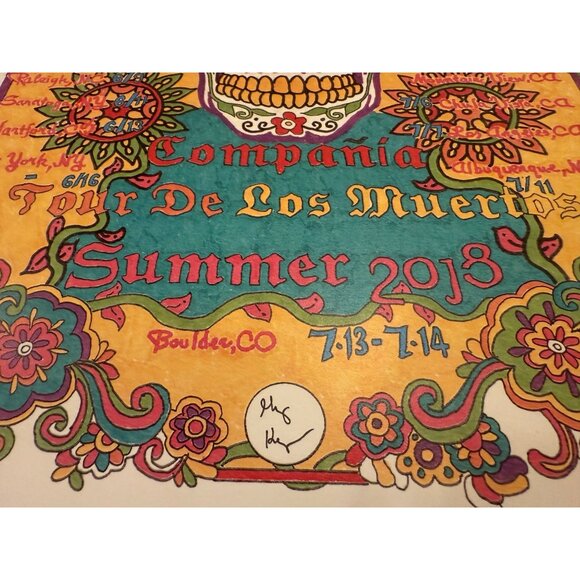 Raleigh, NC 6/9
Mountain View, CA
Saratoga, NY 6/11
7/6 Chula Vista, CA
Hartford, CT 6/13
7/7 Los Angeles, CA
York, NY 6/16
Albuquerque, N 7/11
Compañia
Tour De Los Muertos
Summer 2018
Boulder, CO 7.13-7.14